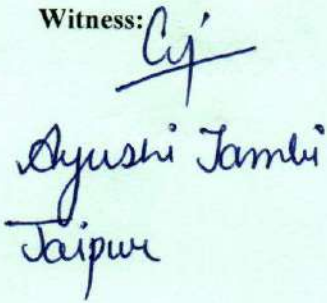 Witness:
Ayushi Tambi
Jaipur